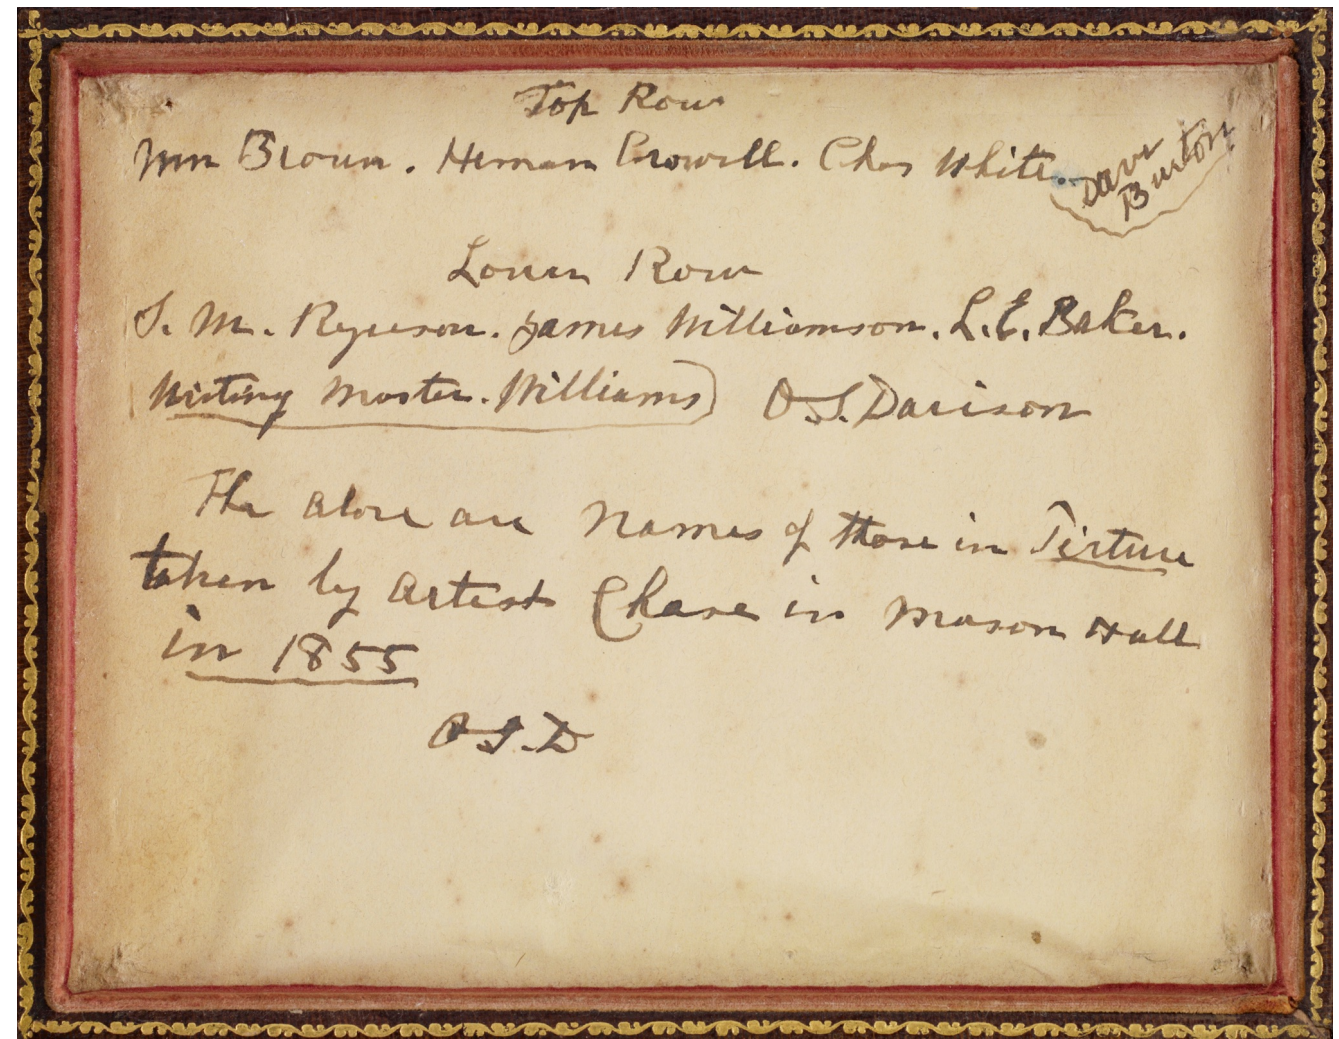 Top Row
Wm Brown. Heman Crowell. Chas White. Dave
Burton
Lower Row
S. M. Ryerson. James Williamson. L. E. Baker.
Writing Master. Williams) O S. Davison
The above are names of those in Picture
taken by artist Chase in Mason Hall
in 1855
O S. D